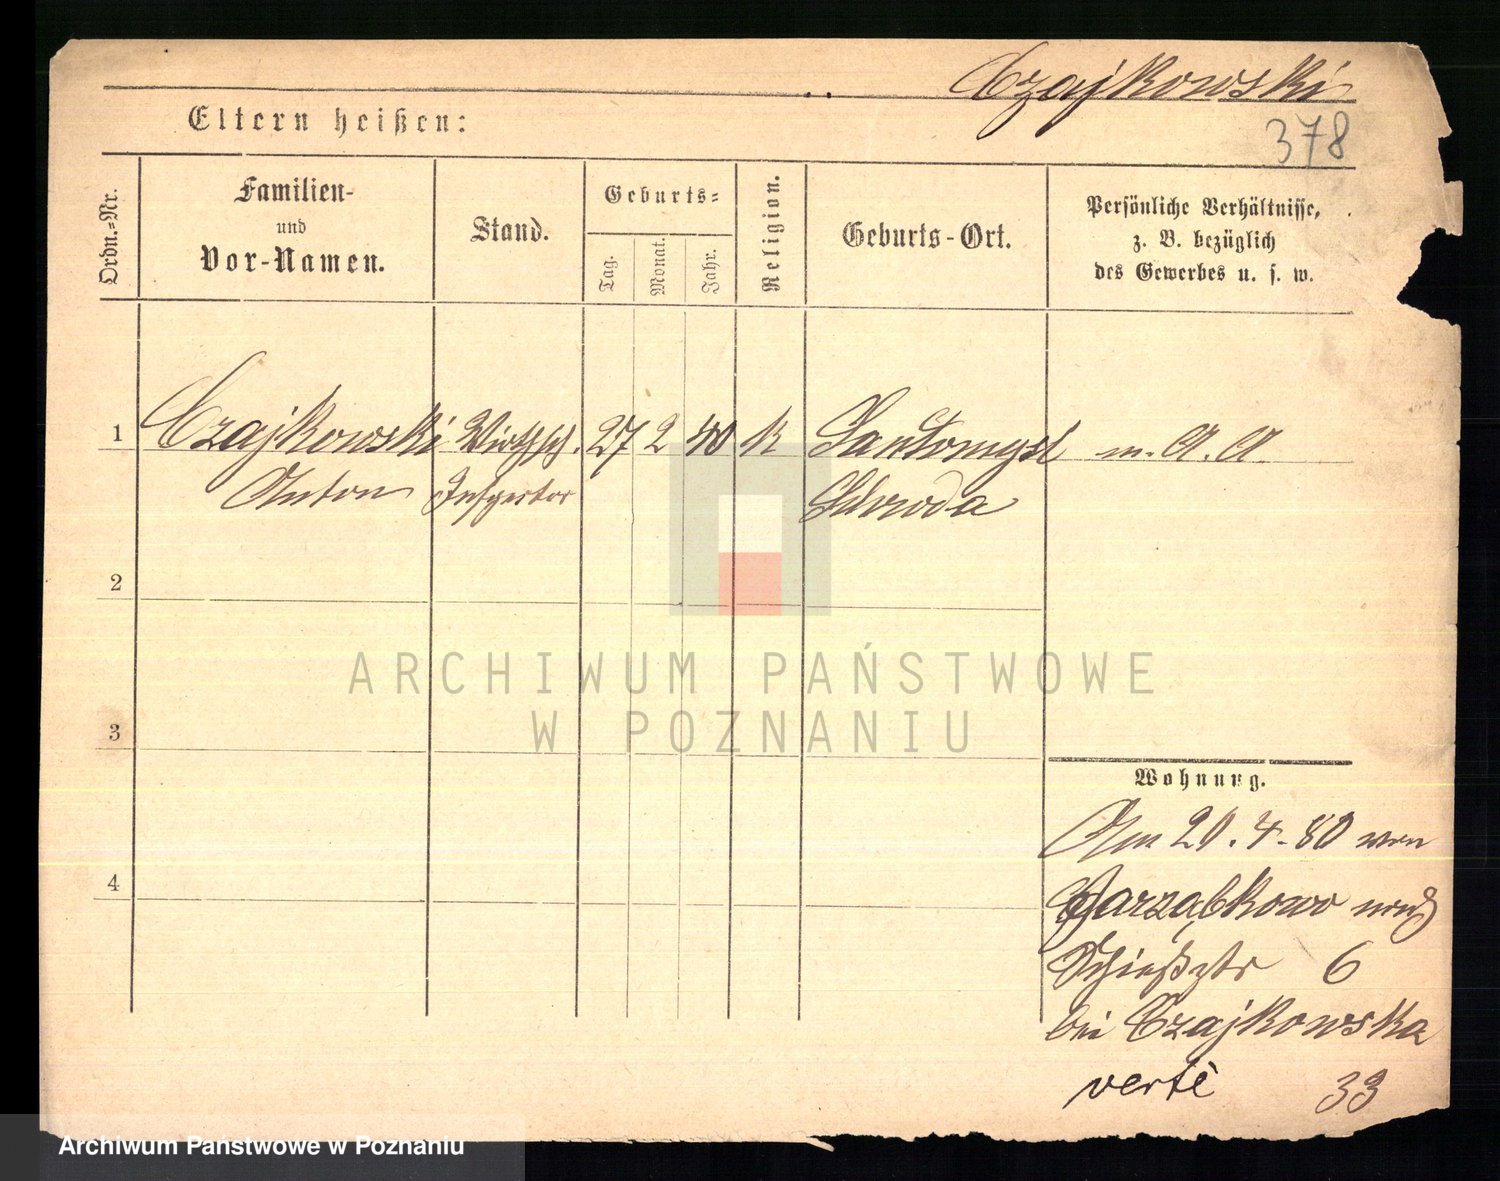 Czajkowski
378
Eltern heißen:
Ordn.-Nr.
Familien-
und
Vor-Namen.
Stand.
Geburts-
Tag.
Monat.
Jahr.
Religion.
Geburts-Ort.
Persönliche Verhältnisse,
z. B. bezüglich
des Gewerbes u. s. w.
1 Czajkowski Wirthsch. 27 2 40 k Santomysl m. A. A.
Anton Inspector Schroda
2
3
4
Wohnung.
Am 20.4.80 von
Jarząbkowo nach
Schießstr 6
bei Czajkowska
verte 33
ARCHIWUM PAŃSTWOWE
W POZNANIU
Archiwum Państwowe w Poznaniu